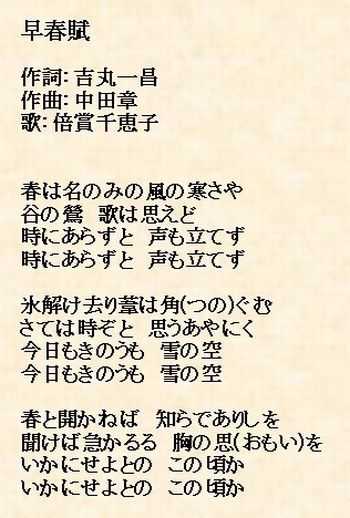 早春賦
作詞: 吉丸一昌
作曲: 中田章
歌: 倍賞千恵子
春は名のみの風の寒さや
谷の鶯　歌は思えど
時にあらずと　声も立てず
時にあらずと　声も立てず
氷解け去り葦は角(つの)ぐむ
さては時ぞと　思うあやにく
今日もきのうも　雪の空
今日もきのうも　雪の空
春と聞かねば　知らでありしを
聞けば急かるる　胸の思(おもい)を
いかにせよとの　この頃か
いかにせよとの　この頃か